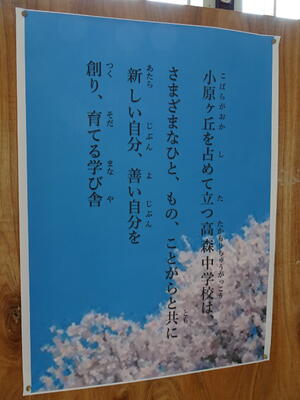 小原ヶ丘を占めて立つ高森中学校は、
さまざまなひと、もの、ことがらと共に
新しい自分、善い自分を
創り、育てる学び舎